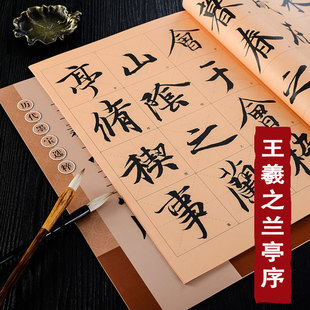 暮春之
會于會稽
山陰之蘭
亭脩禊事
历代墨宝选粹
王羲之兰亭序